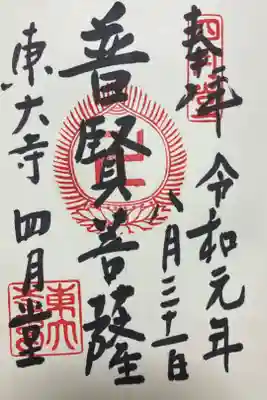 奉拝
令和元年
八月三十一日
普賢菩薩
東大寺 四月堂